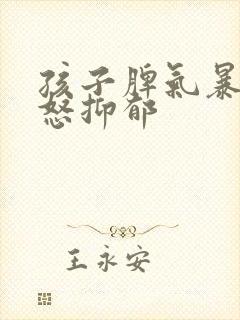 孩子脾氣暴
怒抑郁
王永安